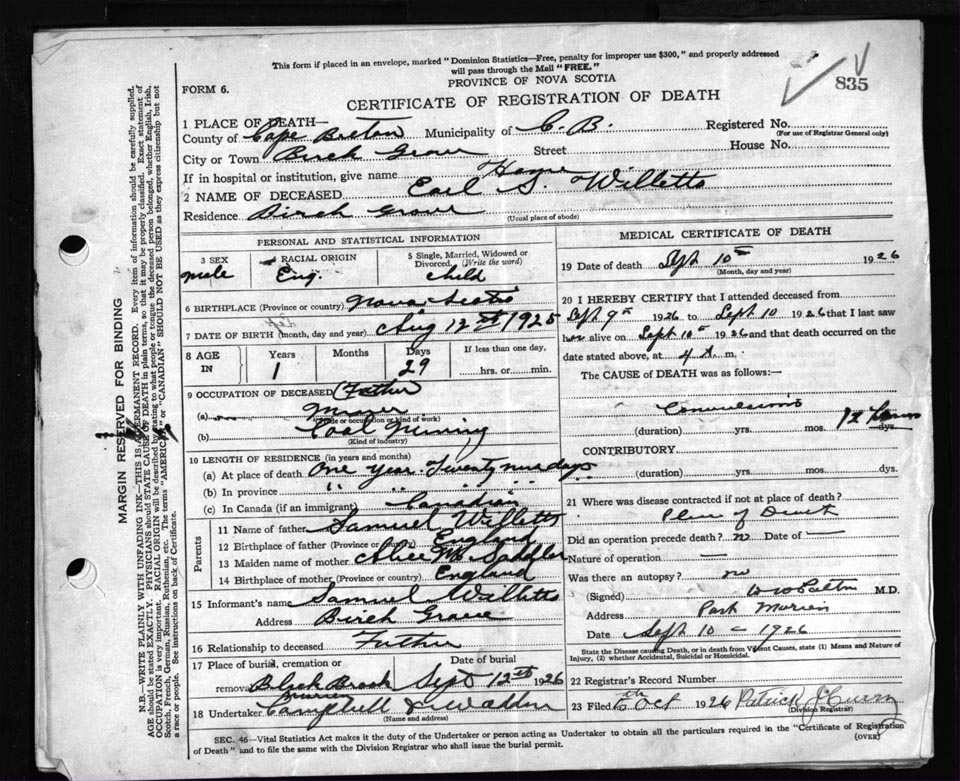 This form if placed in an envelope, marked "Dominion Statistics—Free, penalty for improper use $300," and properly addressed
will pass through the Mail "FREE."
PROVINCE OF NOVA SCOTIA
835
FORM 6.
CERTIFICATE OF REGISTRATION OF DEATH
1 PLACE OF DEATH—
County of Cape Breton Municipality of C. B. Registered No.
(For use of Registrar General only)
City or Town Birch Grove Street House No.
If in hospital or institution, give name Home
2 NAME OF DECEASED Earl S. Willetts
Residence Birch Grove
(Usual place of abode)
PERSONAL AND STATISTICAL INFORMATION
3 SEX
male
4 RACIAL ORIGIN
Eng.
5 Single, Married, Widowed or
Divorced. (Write the word)
child
6 BIRTHPLACE (Province or country) Nova Scotia
7 DATE OF BIRTH (month, day and year) Aug 12th 1925
8 AGE IN
Years Months Days If less than one day,
1 29 hrs. or min.
9 OCCUPATION OF DECEASED (Father
(a) Miner
(Trade or occupation or kind of work)
(b) Coal Mining
(Kind of industry)
10 LENGTH OF RESIDENCE (in years and months)
(a) At place of death One year. Twenty nine days
(b) In province " " " "
(c) In Canada (if an immigrant) Canadian
Parents
11 Name of father Samuel Willetts
12 Birthplace of father (Province or country) England
13 Maiden name of mother Alice
14 Birthplace of mother (Province or country) England
15 Informant's name Samuel Willetts
Address Birch Grove
16 Relationship to deceased Father
17 Place of burial, cremation or Date of burial
removal Black Brook Sept 12th 1926
18 Undertaker Campbell &
(Name and address)
MEDICAL CERTIFICATE OF DEATH
19 Date of death Sept 10th 1926
(Month, day and year)
20 I HEREBY CERTIFY that I attended deceased from
Sept 9th 1926 to Sept 10 1926 that I last saw
him alive on Sept 10th 1926 and that death occurred on
date stated above, at 4 A. m.
The CAUSE of DEATH was as follows:—
Convulsions
12 hours
(duration) yrs. mos. dys.
CONTRIBUTORY
(duration) yrs. mos. dys.
21 Where was disease contracted if not at place of death?
Place of Death
Did an operation precede death? no Date of —
Nature of operation —
Was there an autopsy? no
(Signed) M.D.
Address Port Morien
Date Sept 10 - 1926
State the Disease causing Death, or in death from Violent Causes, state (1) Means and Nature of
Injury, (2) whether Accidental, Suicidal or Homicidal.
22 Registrar's Record Number
23 Filed 5th Oct 1926 Patrick J.
(Division Registrar)
SEC. 46—Vital Statistics Act makes it the duty of the Undertaker or person acting as Undertaker to obtain all the particulars required in the "Certificate of Registration
of Death" and to file the same with the Division Registrar who shall issue the burial permit. (OVER)
MARGIN RESERVED FOR BINDING
N.B.—WRITE PLAINLY WITH UNFADING INK—THIS IS A PERMANENT RECORD. Every item of information should be carefully supplied.
AGE should be stated EXACTLY. PHYSICIANS should STATE CAUSE OF DEATH in plain terms, so that it may be properly classified. Exact statement of
OCCUPATION is very important. RACIAL ORIGIN will be described by stating to what people or tongue the deceased person belonged, whether English, Irish,
Scotch, French, German, Russian, Ruthenian, etc. The terms "AMERICAN" or "CANADIAN" SHOULD NOT BE USED as they express citizenship but not
a race or people. See instructions on back of Certificate.